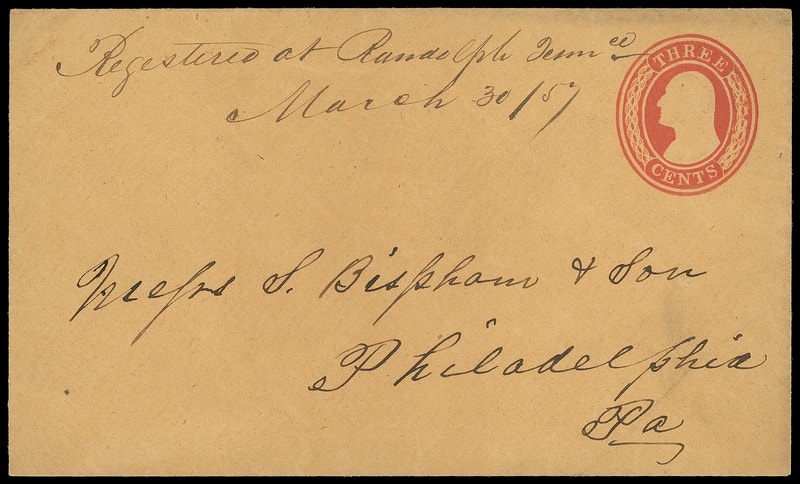 Regestered at Randolph Tennee
March 30/57
THREE
CENTS
Messrs S. Bispham & Son
Philadelphia
Pa